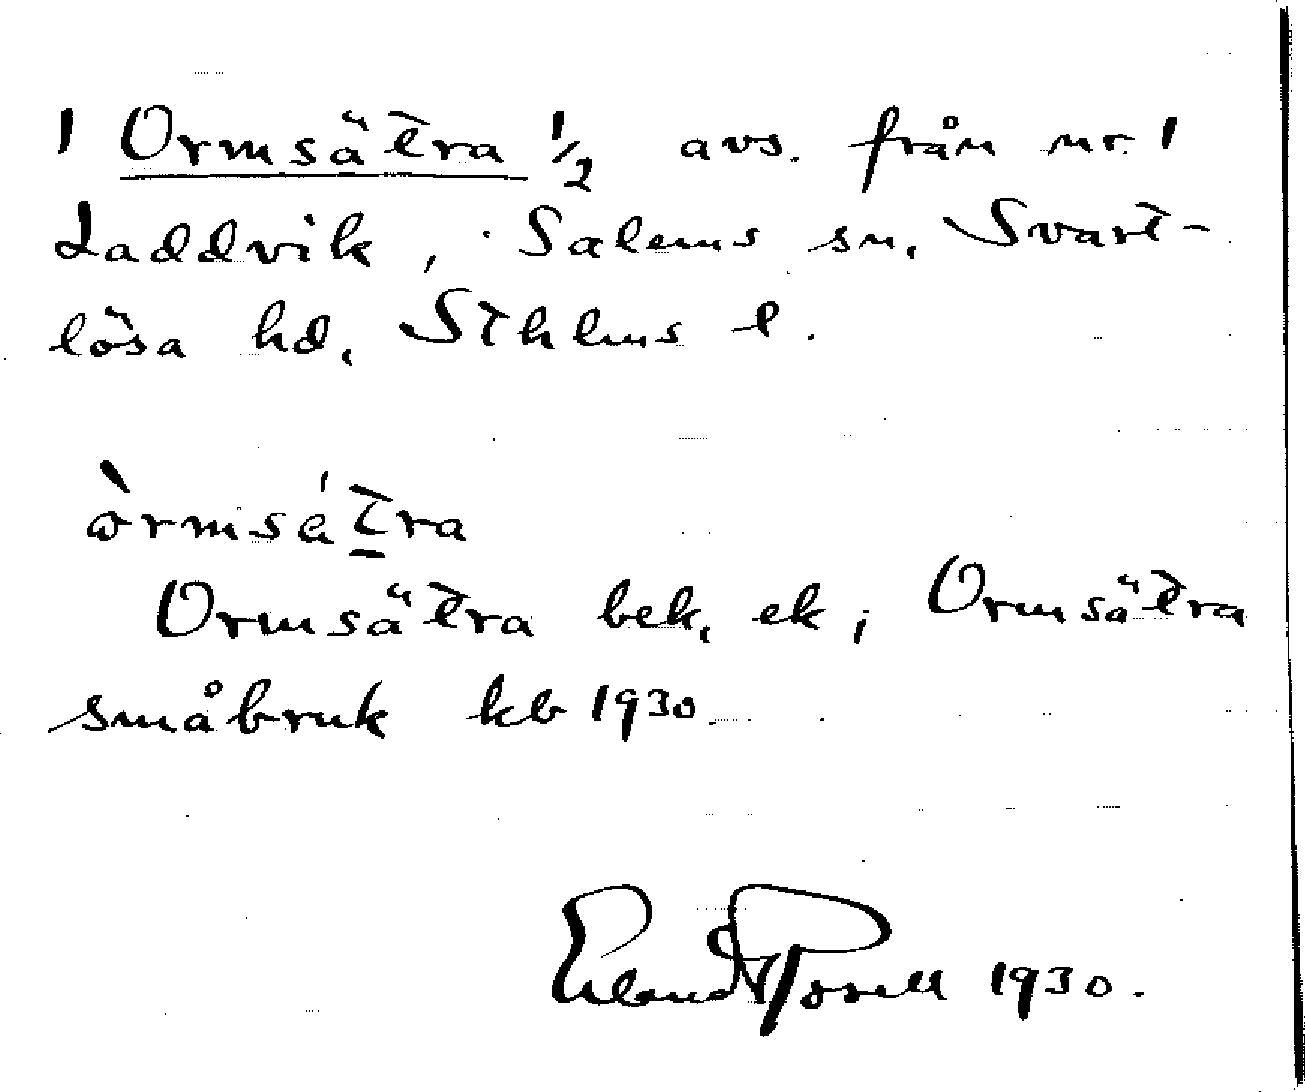 1 Ormsätra 1/2 avs. från nr. 1
Laddvik, Salems sn, Svart-
lösa hd, Sthlms l.
òrmsétra
Ormsätra bek, ek; Ormsätra
småbruk kb 1930
Erland Rosell 1930.